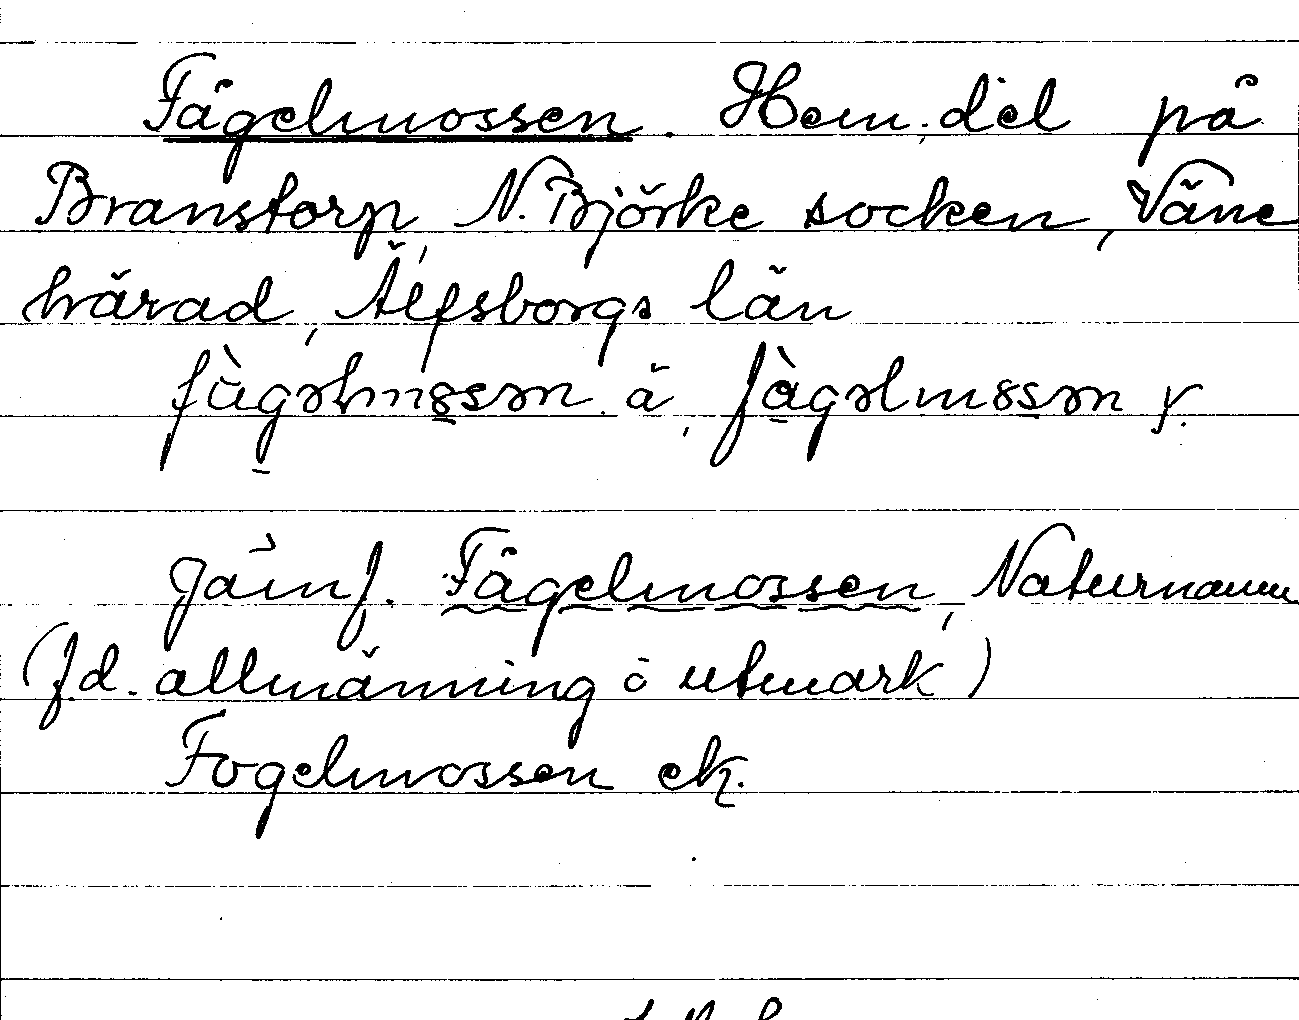 Fågelmossen. Hem.del på
Branstorp, N. Björke socken, Väne
härad, Älfsborgs län
fàgəlm8sən. ä, fàgəlm8sən y.
Jämf. Fågelmossen, Naturnamn
(fd. allmänning o utmark)
Fogelmossen ek.